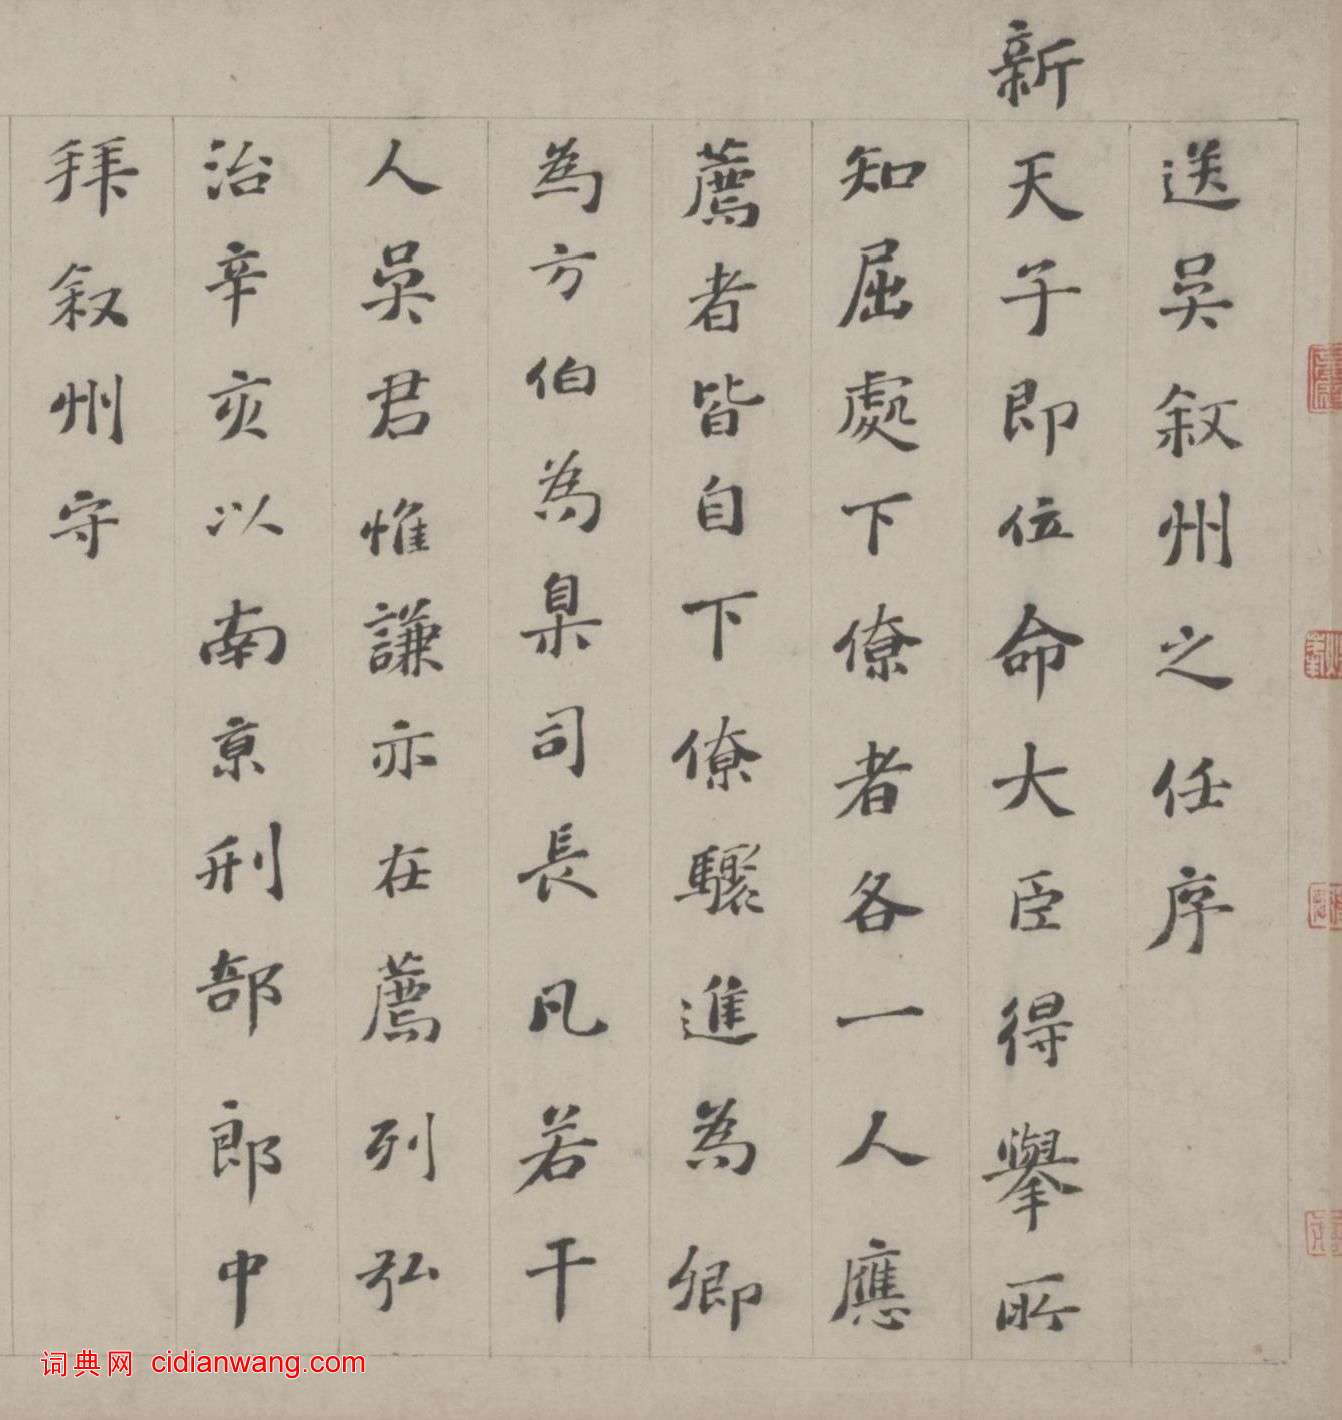 送吳叙州之任序
新天子即位命大臣得舉所
知屈處下僚者各一人應
薦者皆自下僚驟進為卿
為方伯為臬司長凡若干
人吳君惟謙亦在薦列弘
治辛亥以南京刑部郎中
拜叙州守
词典网 cidianwang.com